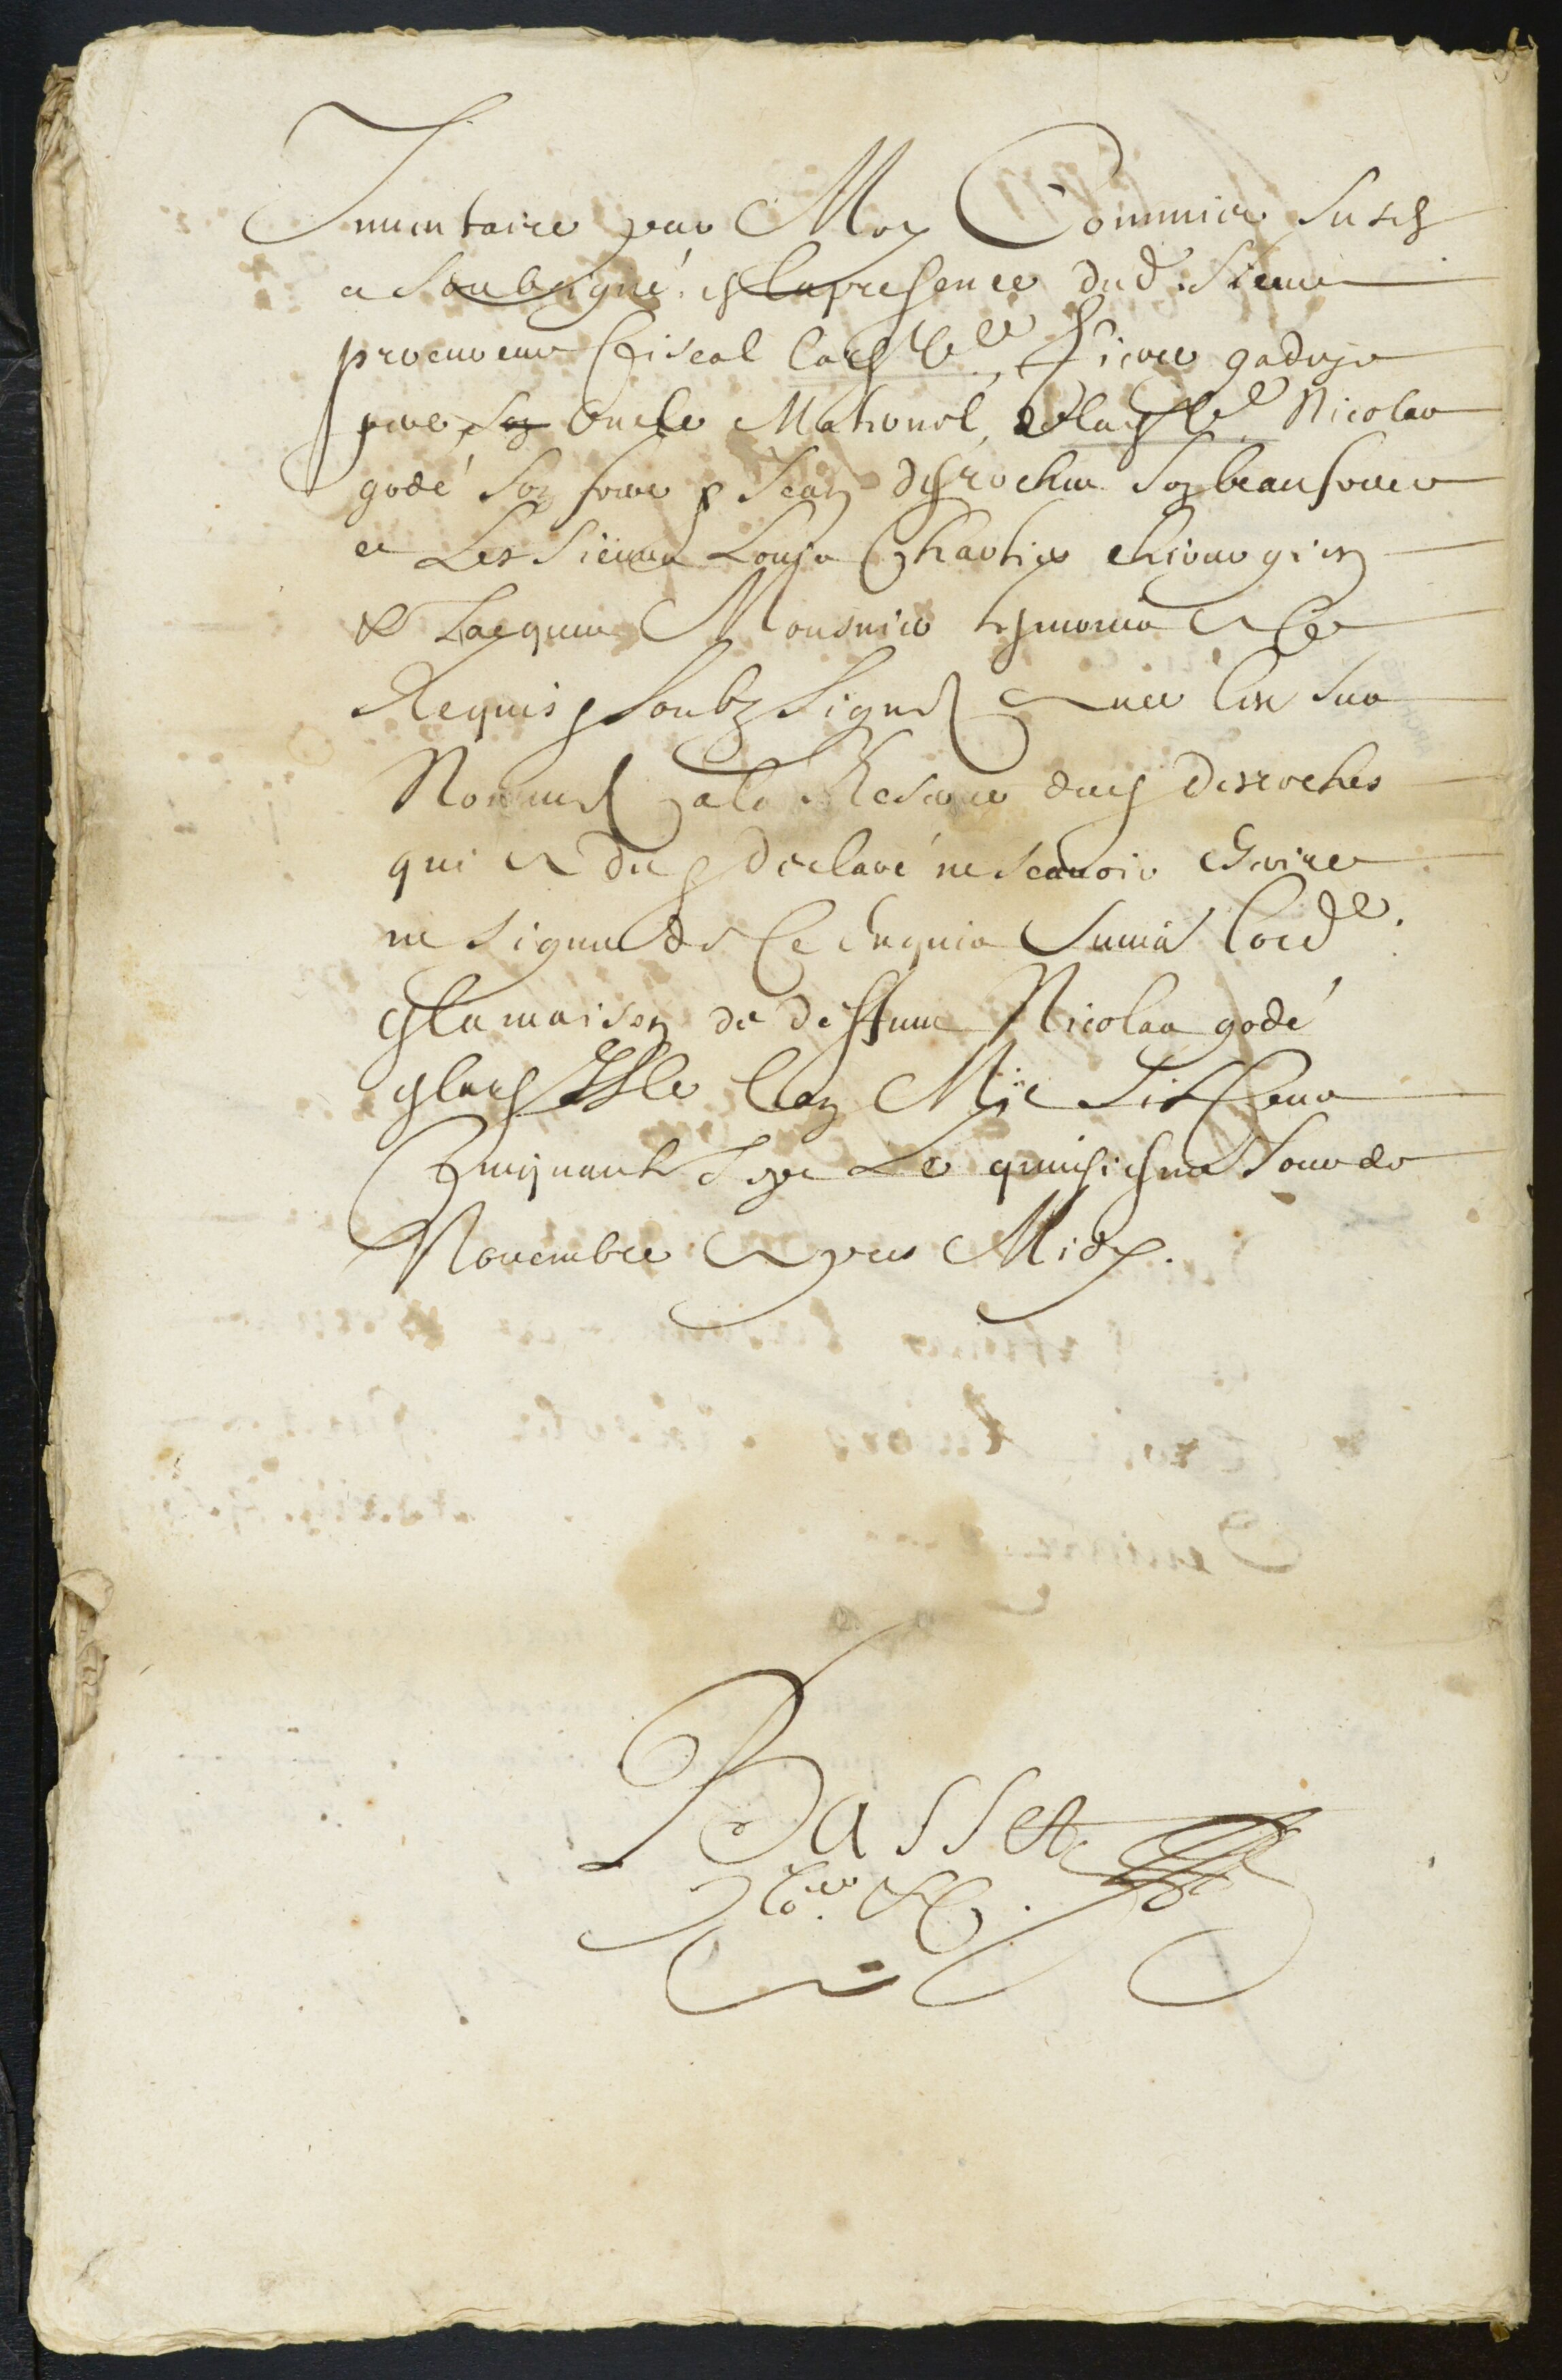 Inuentaire par Moy Commis susd
a soubsigné, En la presence dud. Sieur
procureur fiscal Pierre gadoys
pere, son Oncle Maternel, Nicolas
godé son frere & Jean desroches son beaufrere
et Les Sieurs Louys Chartier chirurgien
& Jacques Mousnier tesmoins A Ce
Requis & soubz signez Auec les sus
Nommez a la Reserue dud desroches
qui A dit & declaré ne scauoir escrire
ne signer de Ce Enquis suiuant lord.ce
En la maison de deffunt Nicolas godé
Lan Mil Six Cens
Cinquante Sept Le quinziesme Jour de
Novembre Apres Midy.
Basset